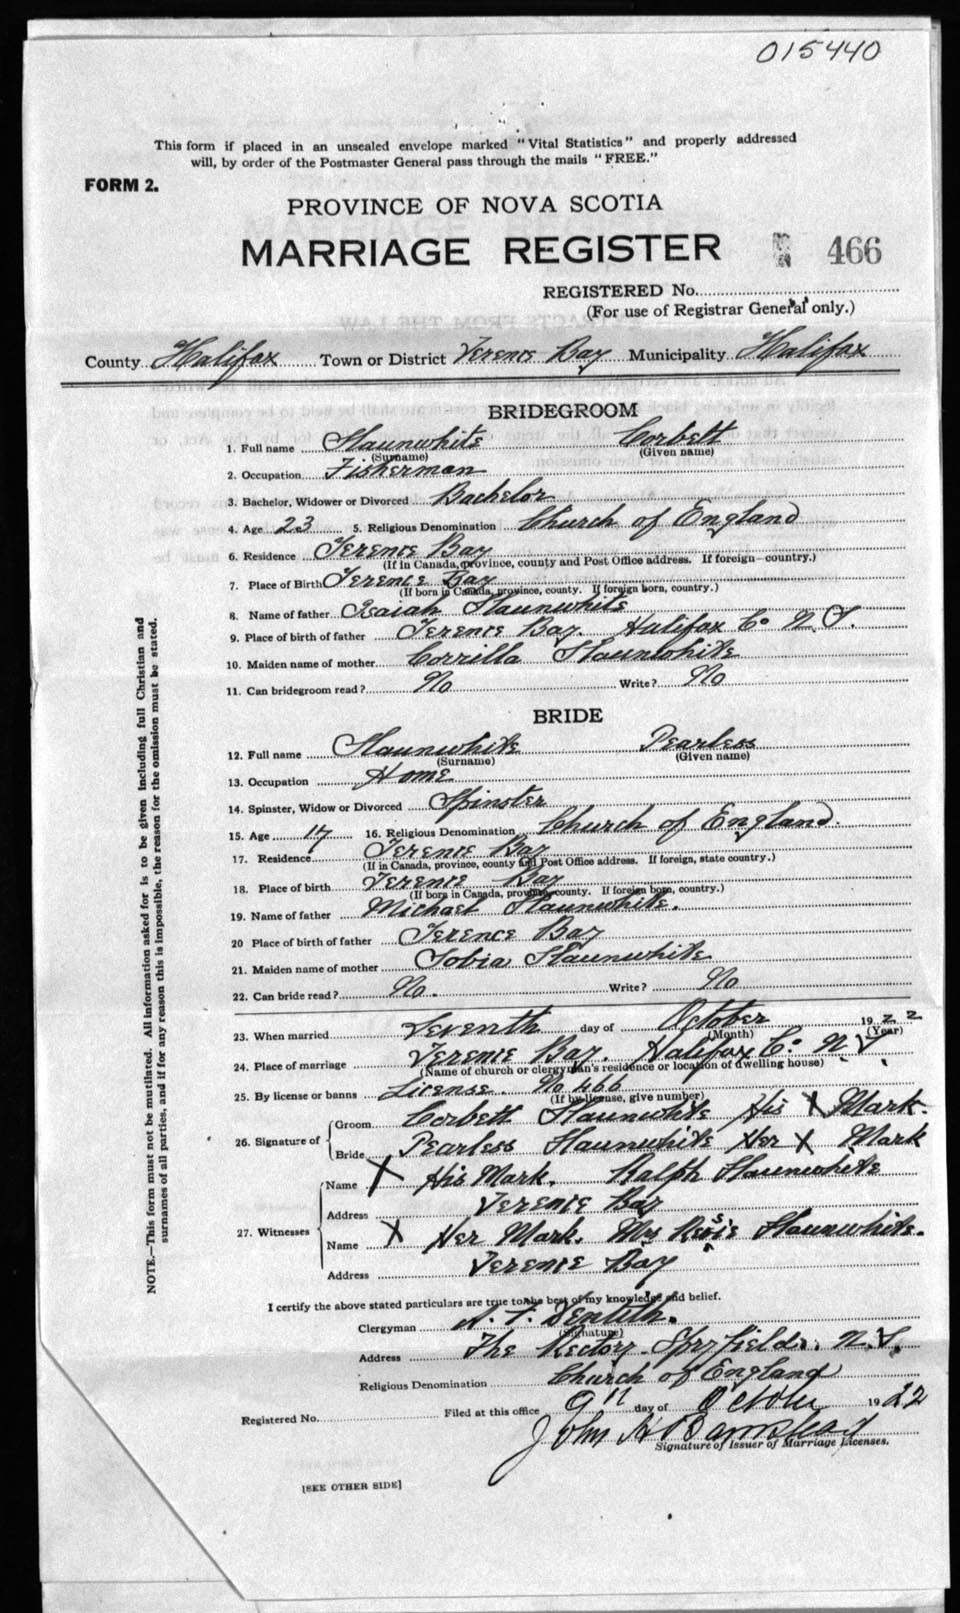 015440
This form if placed in an unsealed envelope marked "Vital Statistics" and properly addressed
will, by order of the Postmaster General pass through the mails "FREE."
FORM 2.
PROVINCE OF NOVA SCOTIA
MARRIAGE REGISTER 466
REGISTERED No.
(For use of Registrar General only.)
County Halifax Town or District Terence Bay Municipality Halifax
BRIDEGROOM
1. Full name Slaunwhite Corbett
(Surname) (Given name)
2. Occupation Fisherman
3. Bachelor, Widower or Divorced Bachelor
4. Age 23 5. Religious Denomination Church of England
6. Residence Terence Bay
(If in Canada, province, county and Post Office address. If foreign country.)
7. Place of Birth Terence Bay
(If born in Canada, province, county. If foreign born, country.)
8. Name of father Isaiah Slaunwhite
9. Place of birth of father Terence Bay. Halifax Co N.S.
10. Maiden name of mother Corrilla Slaunwhite
11. Can bridegroom read? No Write? No
BRIDE
12. Full name Slaunwhite Pearless
(Surname) (Given name)
13. Occupation Home
14. Spinster, Widow or Divorced Spinster
15. Age 17 16. Religious Denomination Church of England.
17. Residence Terence Bay
(If in Canada, province, county and Post Office address. If foreign, state country.)
18. Place of birth Terence Bay
(If born in Canada, province, county. If foreign born, country.)
19. Name of father Michael Slaunwhite.
20 Place of birth of father Terence Bay
21. Maiden name of mother Sobia Slaunwhite
22. Can bride read? No. Write? No
23. When married Seventh day of October 1922
(Month) (Year)
24. Place of marriage Terence Bay. Halifax Co. N.S.
(Name of church or clergyman's residence or location of dwelling house)
25. By license or banns License No 466
(If by license, give number)
26. Signature of Groom Corbett Slaunwhite His X Mark.
Bride Pearless Slaunwhite Her X Mark
27. Witnesses Name X His Mark. Ralph Slaunwhite
Address Terence Bay
Name X Her Mark. Mrs Slaunwhite.
Address Terence Bay
I certify the above stated particulars are true to the best of my knowledge and belief.
Clergyman
(Signature)
Address The Rectory Spryfield. N.S.
Religious Denomination Church of England
Registered No. Filed at this office 9th day of October 1922
John H Barnstead
Signature of Issuer of Marriage Licenses.
[SEE OTHER SIDE]
NOTE.—This form must not be mutilated. All information asked for is to be given including full Christian and
surnames of all parties, and if for any reason this is impossible, the reason for the omission must be stated.